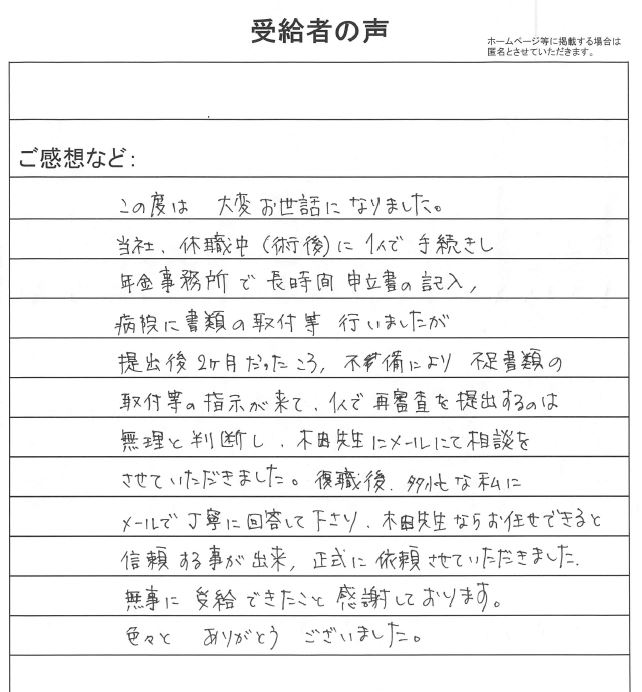 受給者の声
ホームページ等に掲載する場合は
匿名とさせていただきます。
ご感想など:
この度は 大変お世話になりました。
当社、休職中(術後)に1人で手続きし
年金事務所で長時間申立書の記入,
病院に書類の取付等 行いましたが
提出後2ヶ月だったころ, 不備により 不足書類の
取付等の指示が来て、1人で再審査を提出するのは
無理と判断し、木田先生にメールにて相談を
させていただきました。復職後、多忙な私に
メールで丁寧に回答して下さり、木田先生ならお任せできると
信頼する事が出来, 正式に依頼させていただきました.
無事に受給できたこと感謝しております。
色々と ありがとう ございました。